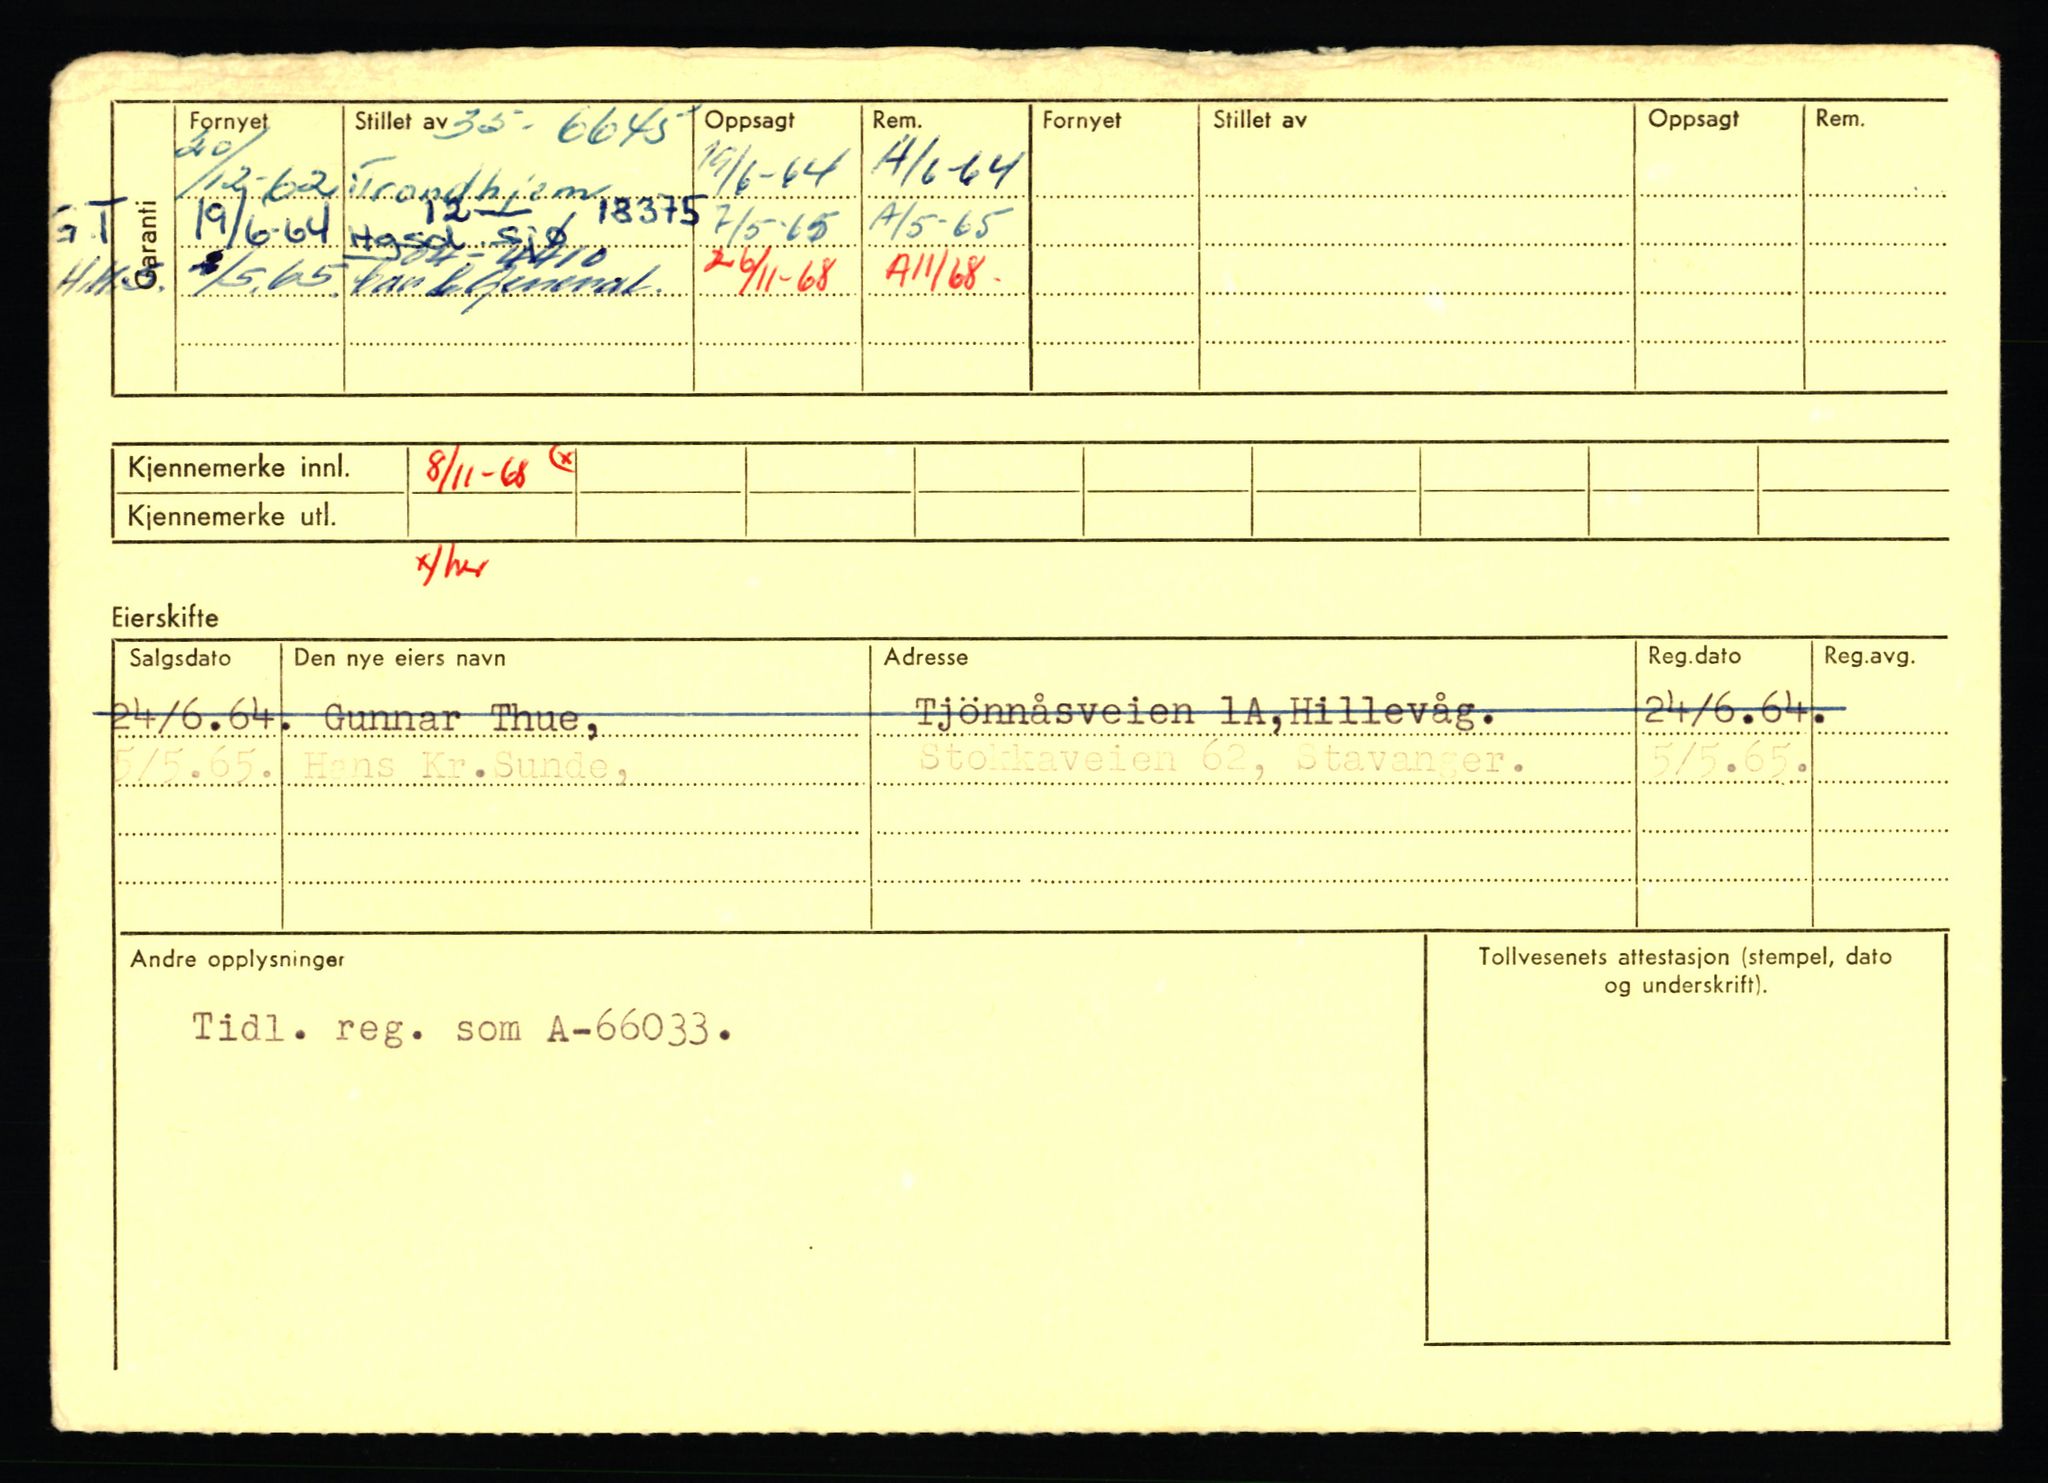 Fornyet Stillet av 35-6645 Oppsagt Rem. Fornyet Stillet av Oppsagt Rem.
Garanti
20/12-62 Trondhjem 19/6-64 A/6-64
G.T 19/6-64 12 18375 7/5-65 A/5-65
H.K.S. /5.65. General. 26/11-68 A11/68.
Kjennemerke innl. 8/11-68 (x
Kjennemerke utl.
x/her
Eierskifte
Salgsdato Den nye eiers navn Adresse Reg.dato Reg.avg.
24/6.64. Gunnar Thue, Tjönnåsveien 1A,Hillevåg. 24/6.64.
5/5.65. Hans Kr.Sunde, Stokkaveien 62, Stavanger. 5/5.65.
Andre opplysninger
Tollvesenets attestasjon (stempel, dato
og underskrift).
Tidl. reg. som A-66033.